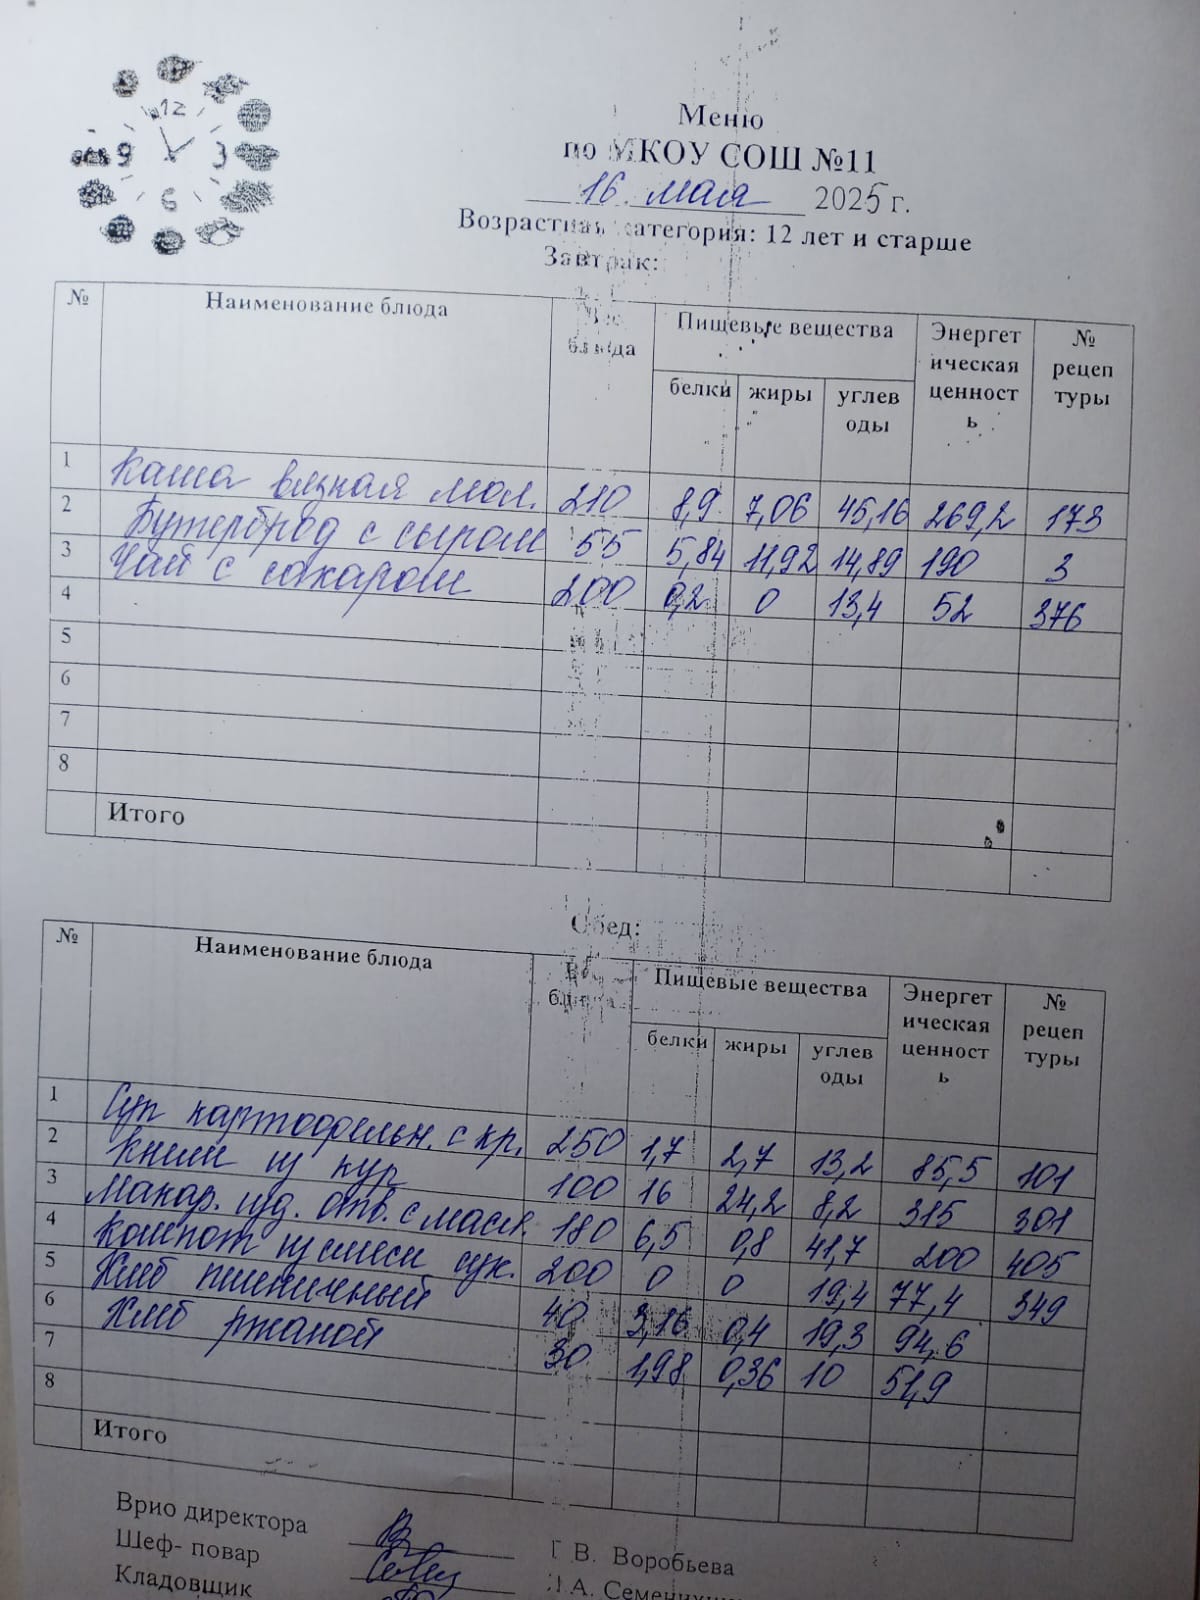 12
9 3
6
Меню
по МКОУ СОШ №11
16 мая 2025 г.
Возрастная категория: 12 лет и старше
Завтрак:
№ Наименование блюда Вес блюда Пищевые вещества Энергет ическая ценност ь № рецеп туры
белки жиры углев оды
1 Каша вязкая мол. 210 8,9 7,06 45,16 269,2 173
2 Бутерброд с сыром 55 5,84 11,92 14,89 190 3
3 Чай с сахаром 200 0,2 0 13,4 52 376
4
5
6
7
8
Итого
Обед:
№ Наименование блюда Вес блюда Пищевые вещества Энергет ическая ценност ь № рецеп туры
белки жиры углев оды
1 Суп картофельн. с кр. 250 1,7 2,7 13,2 85,5 101
2 из кур 100 16 24,2 8,2 315 301
3 Макар. изд. отв. с масл. 180 6,5 0,8 41,7 200 405
4 Компот из смеси сух. 200 0 0 19,4 77,4 349
5 Хлеб пшеничный 40 3,16 0,4 19,3 94,6
6 Хлеб ржаной 30 1,98 0,36 10 51,9
7
8
Итого
Врио директора В. Воробьева
Шеф- повар А.
Кладовщик